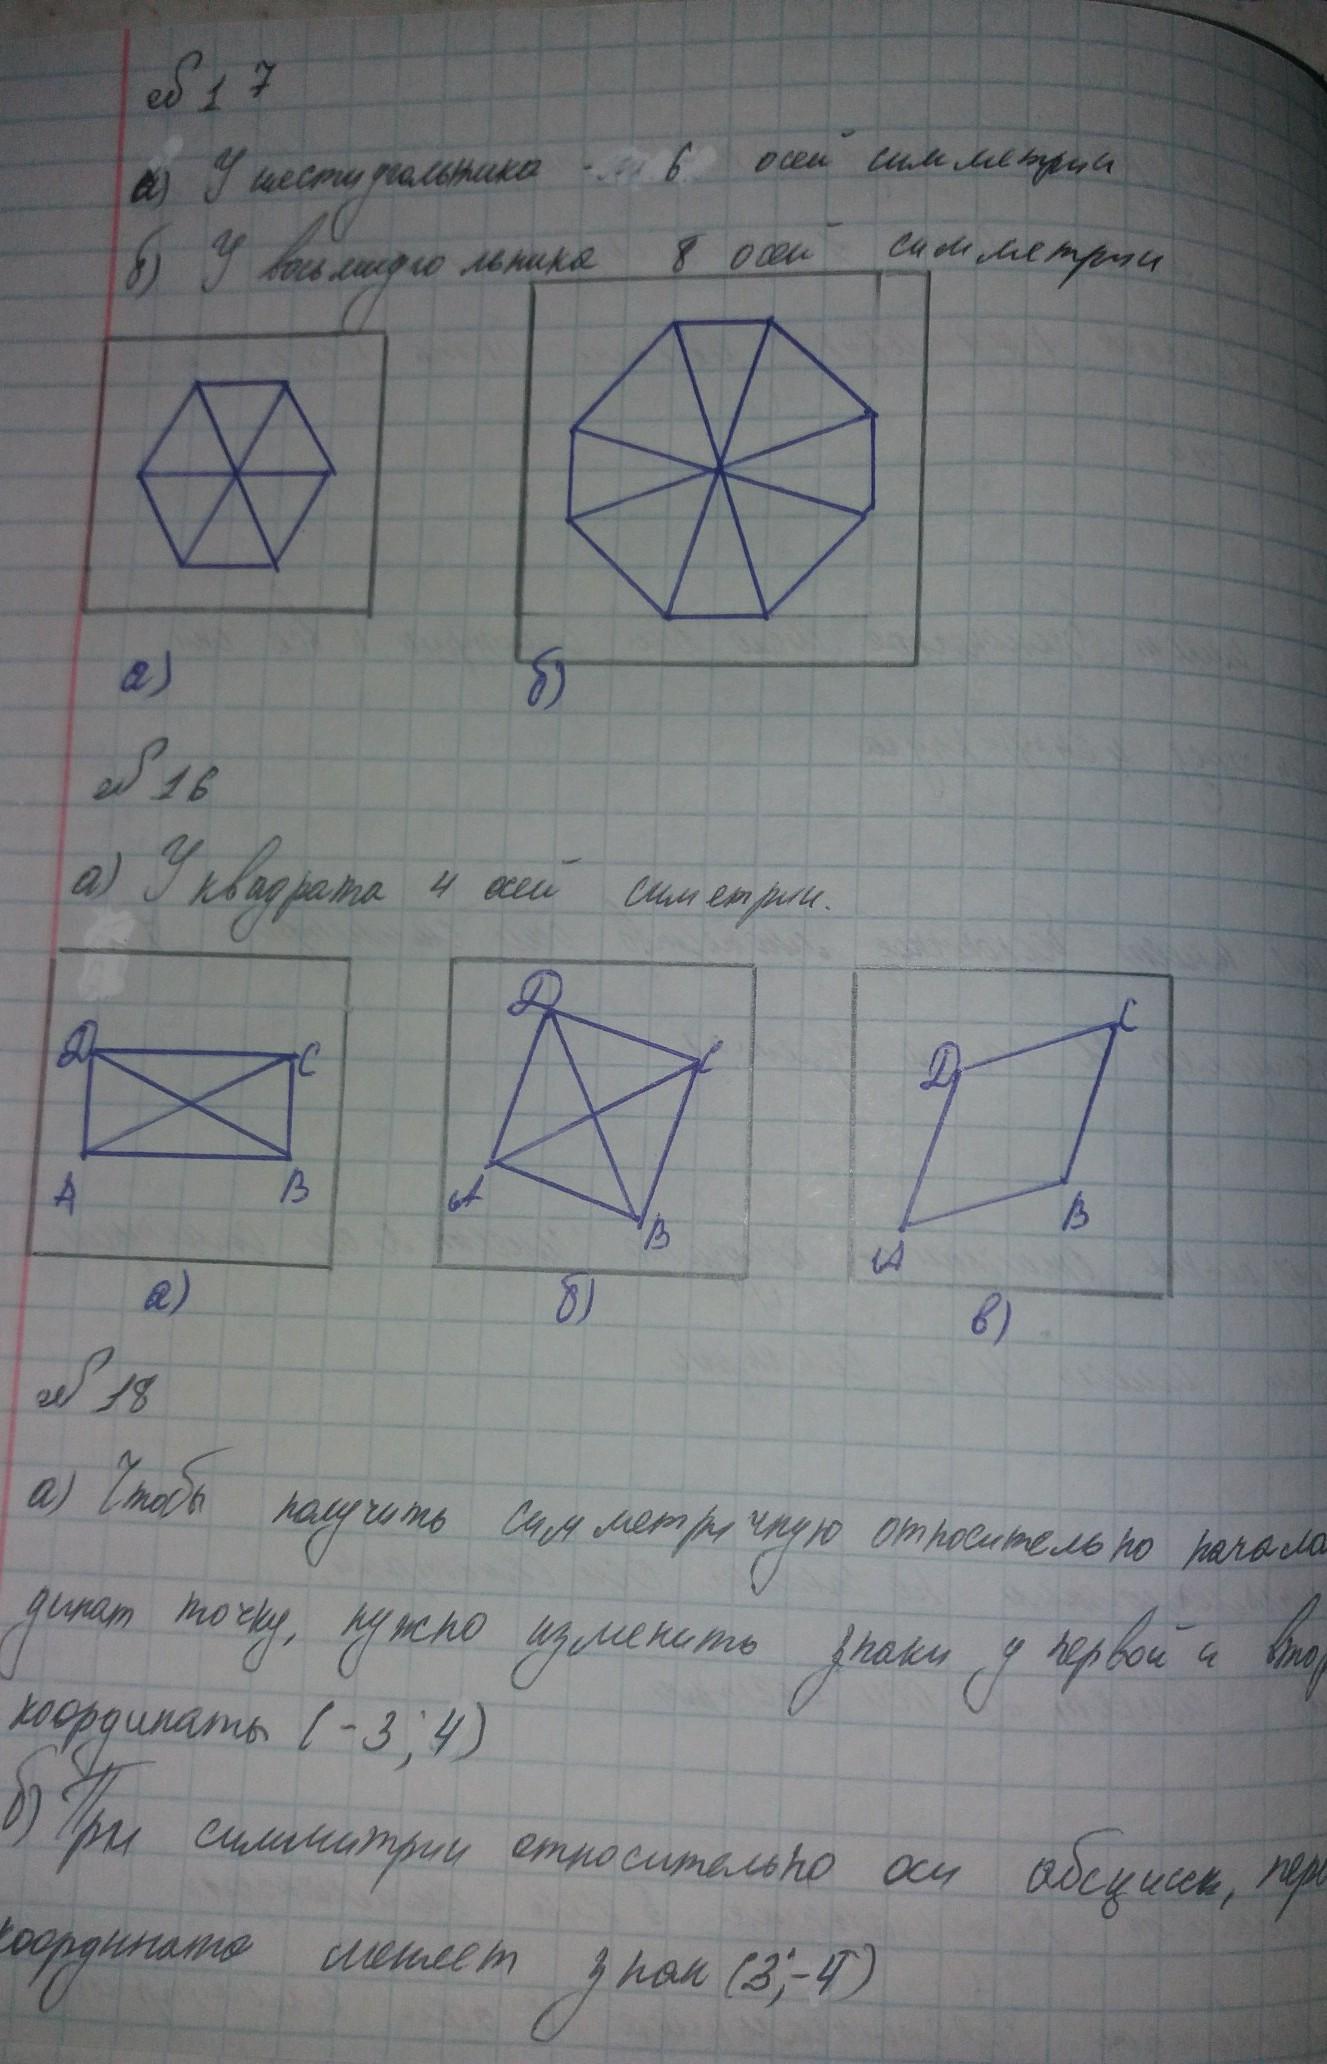 №17
а) У шестиугольника - 6 осей симметрии
б) У восьмиугольника 8 осей симметрии
а) б)
№16
а) У квадрата 4 осей симетрии.
D C D C D C
A B A B A B
а) б) в)
№18
а) Чтобы получить симметричную относительно начала
динат точку, нужно изменить знаки у первой и втор
координаты (-3; 4)
б) При симмитрии относительно оси абсцисс, перв
координата меняет знак (3; -4)